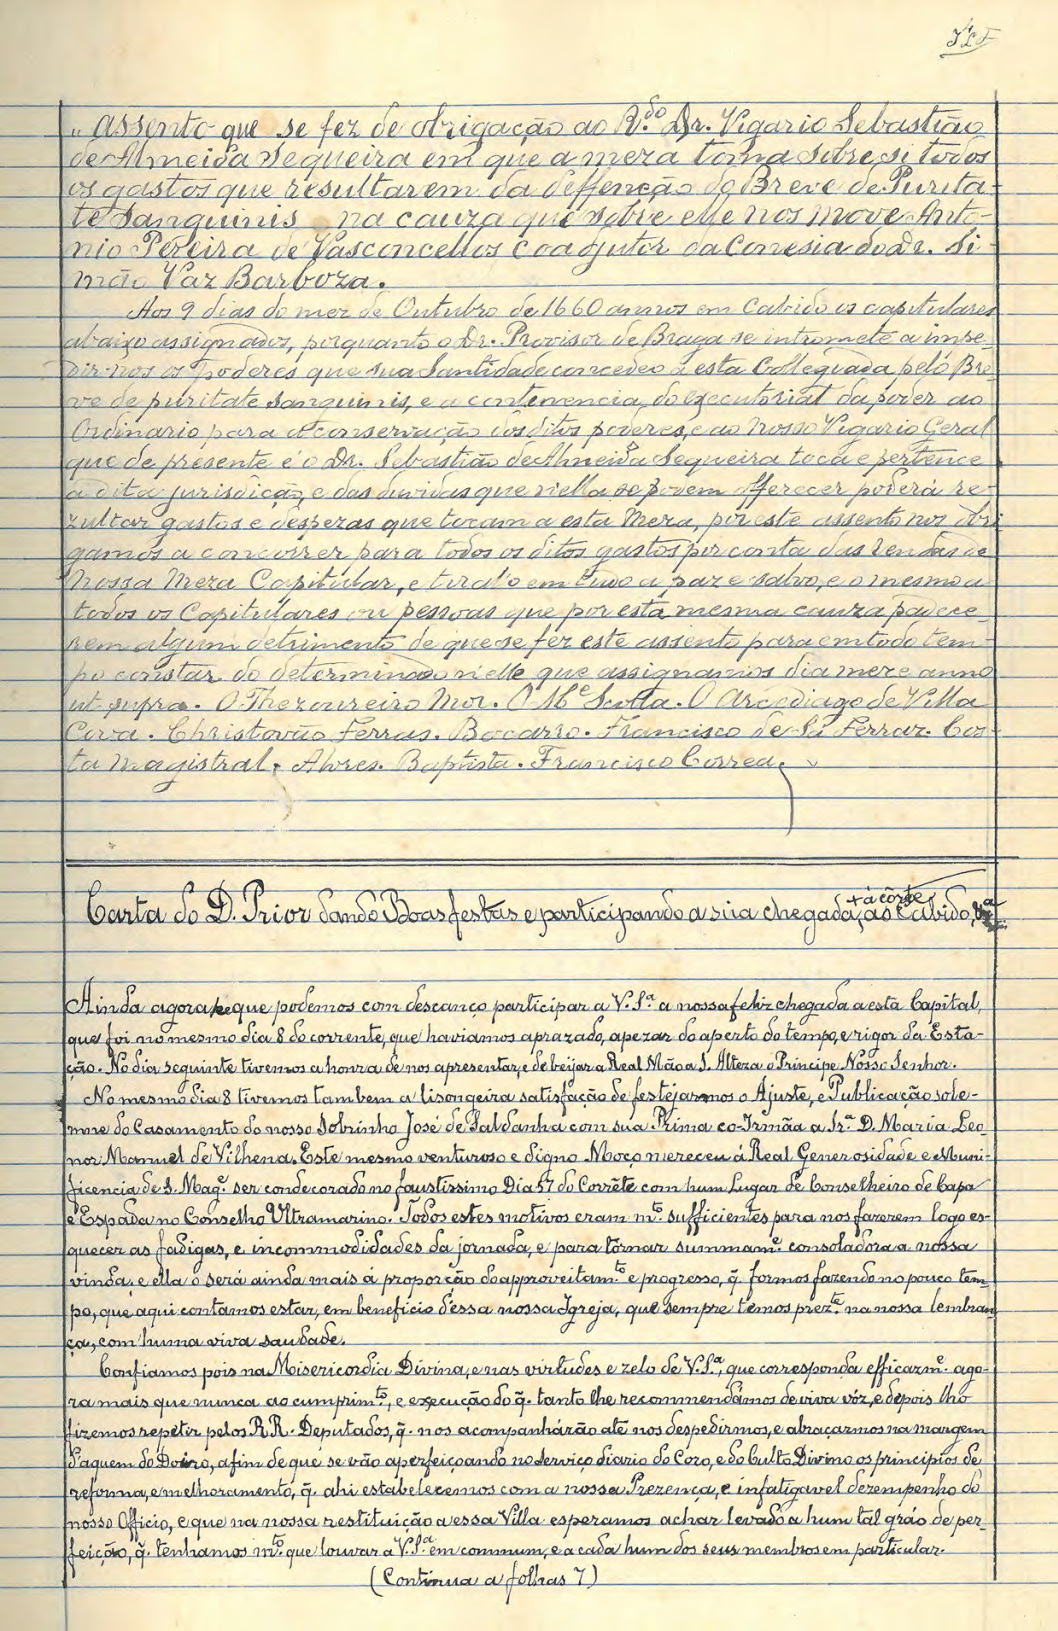 „ Assento que se fez de obrigação ao R.do Dr. Vigario Sebastião
de Almeida Sequeira em que a meza toma sobre si todos
os gastos que resultarem da deffenção do Breve de Purita-
te Sanguinis na cauza que sobre elle nos move Anto-
nio Pereira de Vasconcellos Coadjutor da Conesia do Dr. Si-
mão Vaz Barboza.
Aos 9 dias do mez de Outubro de 1660 annos em Cabido os capitulares
abaixo assignados, porquanto o Dr. Provisor de Braga se intromete a impe-
dir-nos os poderes que sua Santidade concedeo a esta Collegiada pelo Bre-
ve de puritate sanguinis, e a contenencia do executorial da poder ao
Ordinario para a conservação dos ditos poderes, e ao Nosso Vigario Geral
que de presente é o Dr. Sebastião de Almeida Sequeira toca e pertence
a dita jurisdição, e das duvidas que n'ella se podem offerecer poderá re-
zultar gastos e despezas que tocam a esta Meza, por este assento nos obri
gamos a concorrer para todos os ditos gastos por conta das rendas de
Nossa Meza Capitular, e tiral'o em tudo a paz e salvo, e o mesmo a
todos os Capitulares ou pessoas que por esta mesma cauza padece-
rem algum detrimento de que se fez este assento para em todo tem-
po constar do determinado n'elle que assignamos dia mez e anno
ut supra. O Thezoureiro Mor. O M.e Scolla. O Arcediago de Villa
Cova. Christovão Ferras. Bocarro. Francisco de Sá Ferraz. Cos-
ta Magistral. Alvres. Baptista. Francisco Correa.
Carta do D. Prior dando Boas festas e participando a sua chegada, + á côrte ao Cabido,
Ainda agora que podemos com descanço participar a V. S.a a nossa feliz chegada a esta Capital,
que foi no mesmo dia 8 do corrente, que haviamos aprazado, apezar do aperto do tempo, e rigor da Esta-
ção. No dia seguinte tivemos a honra de nos apresentar, e de beijar a Real Mão a S. Alteza o Principe Nosso Senhor.
No mesmo dia 8 tivemos tambem a lisongeira satisfação de festejarmos o Ajuste, e Publicação sole-
mne do Casamento do nosso Sobrinho José de Saldanha com sua Prima co-Irmãa a Sr.a D. Maria Leo-
nor Manuel de Vilhena. Este mesmo venturoso e digno Moço mereceu á Real Generosidade e Muni-
ficencia de S. Mag.e ser condecorado no faustissimo Dia 17 do Corrẽte com hum Lugar de Conselheiro de Capa
e Espada no Conselho Ultramarino. Todos estes motivos eram m.to sufficientes para nos fazerem logo es-
quecer as fadigas, e incommodidades da jornada, e para tornar summam.e consoladora a nossa
vinda: e ella o será ainda mais á proporção do approveitam.to e progresso, q̃. formos fazendo no pouco tem-
po, que aqui contamos estar, em beneficio d'essa nossa Igreja, que sempre temos prez.te na nossa lembran
ça, com huma viva saudade.
Confiamos pois na Misericordia Divina, e nas virtudes e zelo de V. S.a, que corresponda efficazm.e ago-
ra mais que nunca ao cumprim.to, e execução do q̃. tanto lhe recommendámos de viva vóz, e depois lho
fizemos repetir pelos R R. Deputados, q̃. nos acompanhárão até nos despedirmos, e abraçarmos na margem
d'aquem do Doiro, a fim de que se vão aperfeiçoando no serviço diario do Coro, e do Culto Divino os principios de
reforma, e melhoramento, q̃. ahi estabelecemos com a nossa Prezença, e infatigavel dezempenho do
nosso Officio, e que na nossa restituição a essa Villa esperamos achar levado a hum tal gráo de per-
feição, q̃. tenhamos m.to que louvar a V. S.a em commum, e a cada hum dos seus membros em particular.
(Continua a folhas 7)